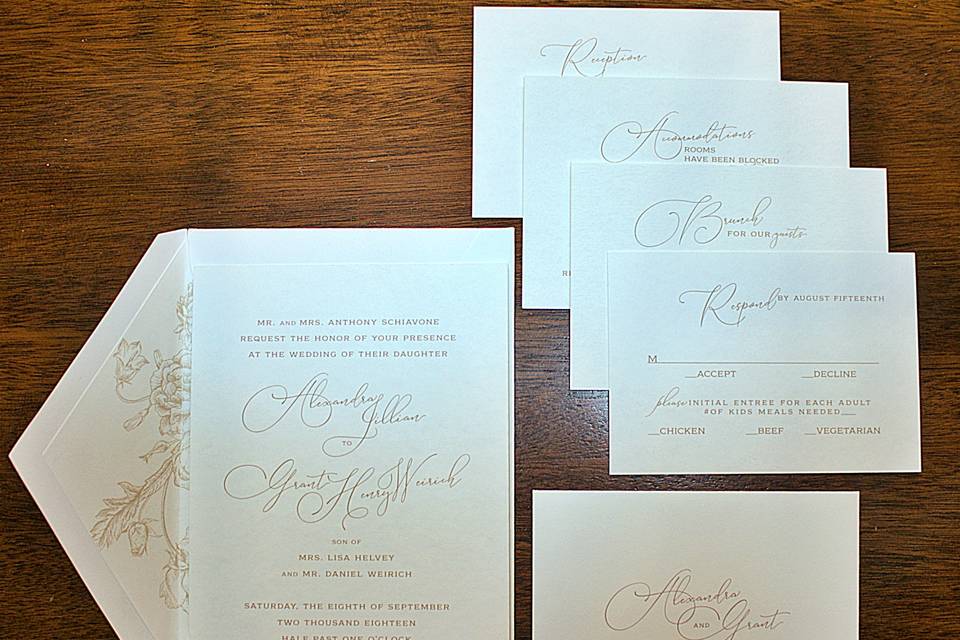 Reception
Accommodations
ROOMS
HAVE BEEN BLOCKED
Brunch
FOR OUR guests
Respond BY AUGUST FIFTEENTH
M
ACCEPT DECLINE
please INITIAL ENTREE FOR EACH ADULT
#OF KIDS MEALS NEEDED
CHICKEN BEEF VEGETARIAN
MR. AND MRS. ANTHONY SCHIAVONE
REQUEST THE HONOR OF YOUR PRESENCE
AT THE WEDDING OF THEIR DAUGHTER
Alexandra Jillian
TO
Grant Henry Weirich
SON OF
MRS. LISA HELVEY
AND MR. DANIEL WEIRICH
SATURDAY, THE EIGHTH OF SEPTEMBER
TWO THOUSAND EIGHTEEN
HALF PAST ONE O'CLOCK
Alexandra
AND Grant